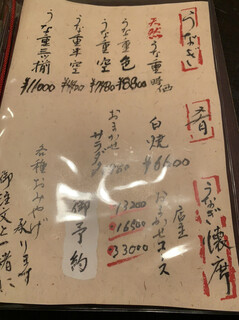 うなぎ
天然うな重 時価
うな重 色 ¥8800
うな重 空 ¥7480
うな重 米空
うな重 三揃 ¥11000
白焼 ¥6600
おまかせサラダ
うなぎ懐石
店主
おまかせコース
13200
16500
33000
御予約
各種おみやげ
承ります
御注文と一緒に